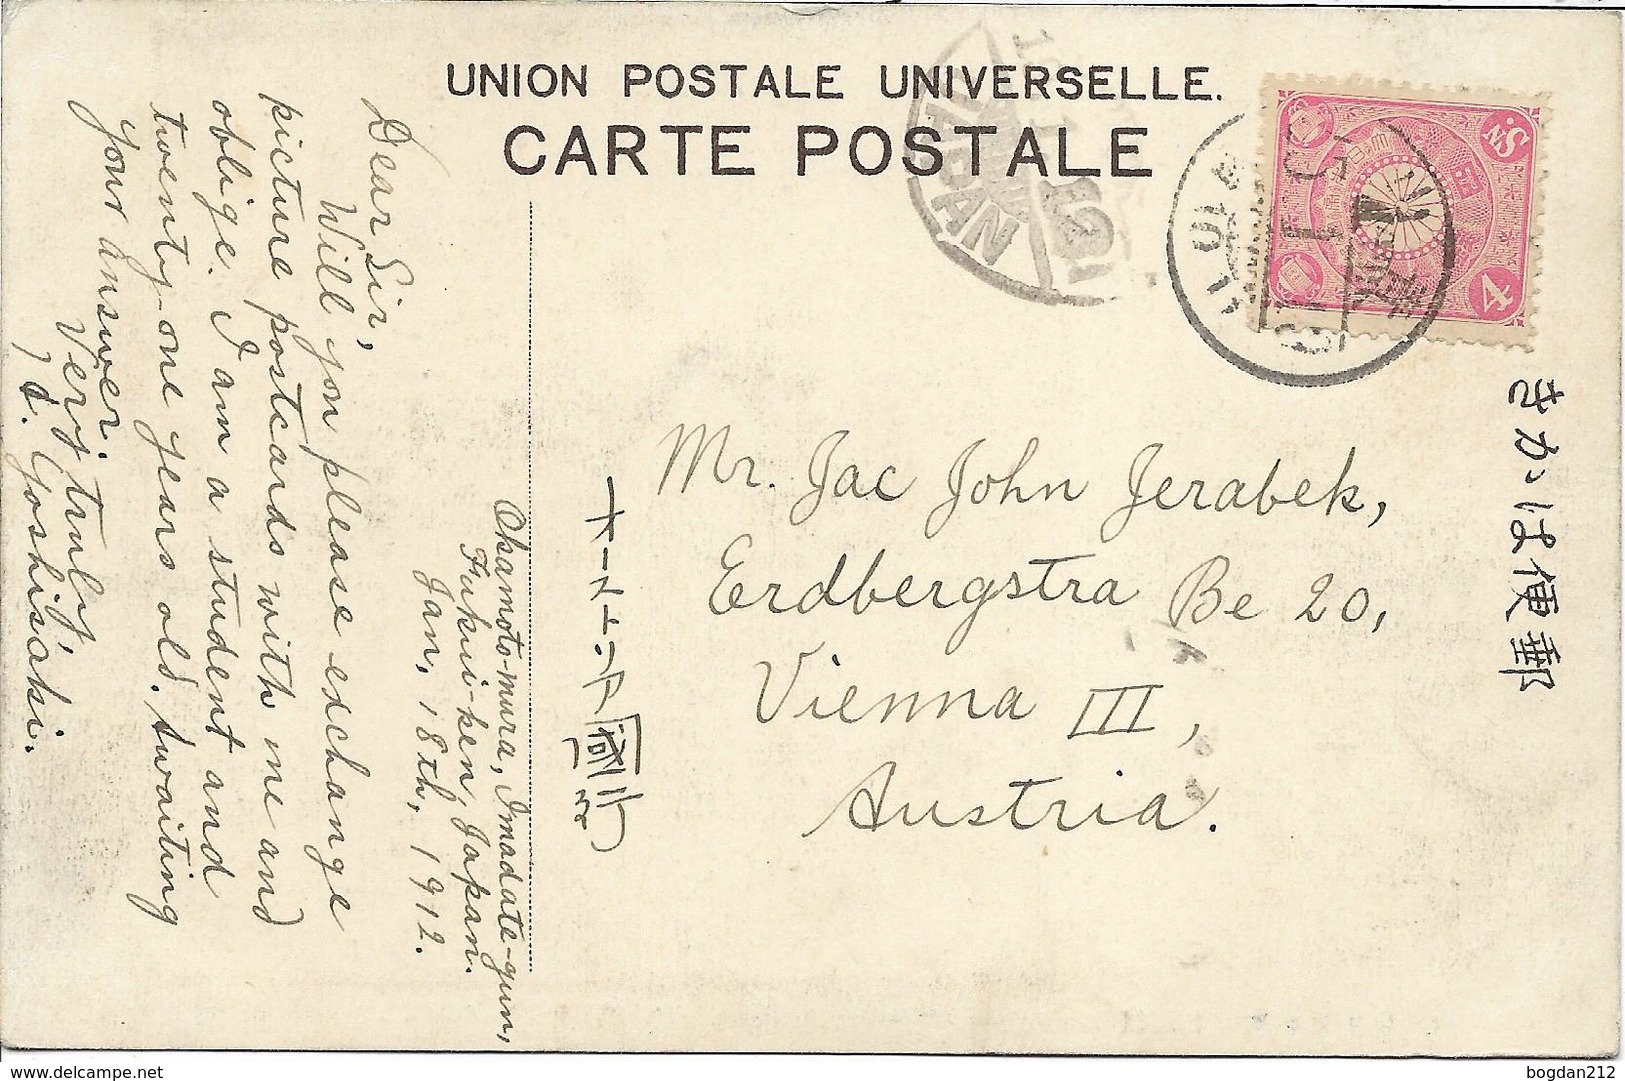 UNION POSTALE UNIVERSELLE.
CARTE POSTALE
JAPAN
4
Sn.
きかは便郵
Mr. Jac John Jerabek,
Erdbergstra Be 20,
Vienna III,
Austria.
Okamoto-mura, Imadate-gun,
Fukui-ken, Japan.
Jan, 18th, 1912.
Dear Sir,
Will you please exchange
picture postcards with me and
oblige. I am a student and
twenty-one years old. Awaiting
your answer.
Very truly,
Yoshisaki.
delcampe.net
bogdan212